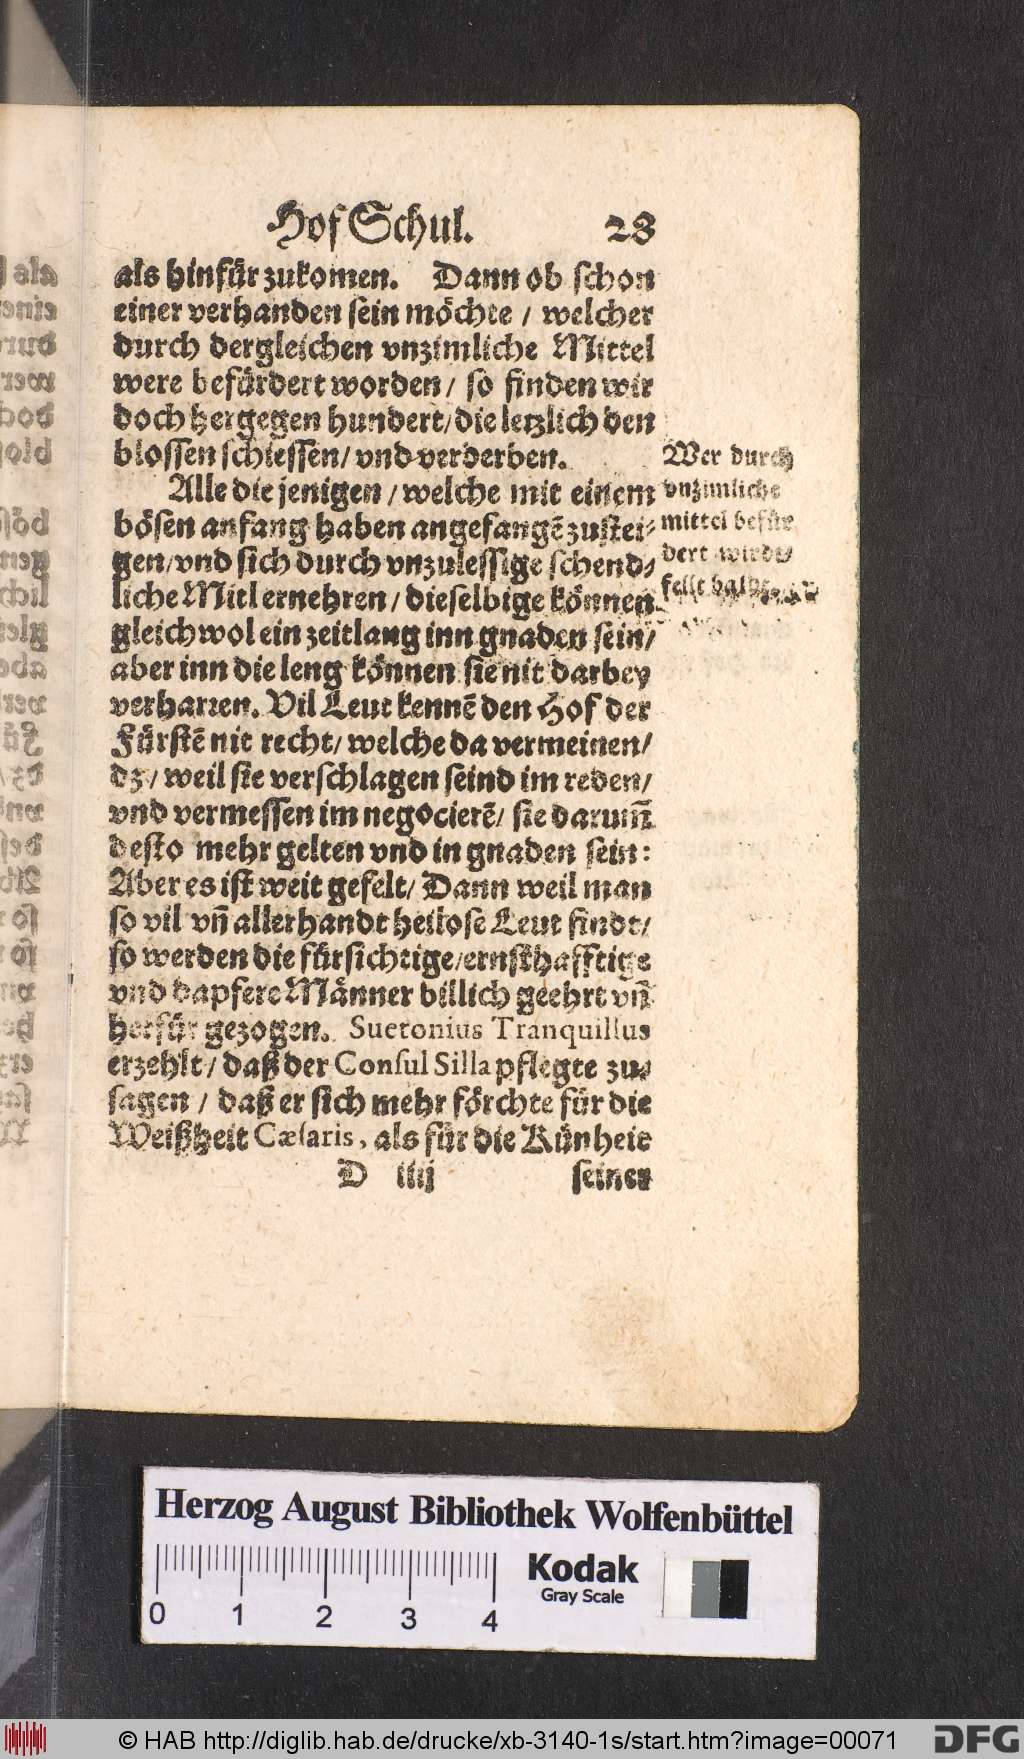 Hof Schul. 28
als hinfür zukomen. Dann ob schon
einer verhanden sein möchte / welcher
durch dergleichen vnzimliche Mittel
were befürdert worden / so finden wir
doch hergegen hundert / die letzlich den
blossen schiessen / vnd verderben.
Wer durch
vnzimliche
mittel befür
dert wird /
fellt
Alle die jenigen / welche mit einem
bösen anfang haben angefangē zustei⸗
gen / vnd sich durch vnzulessige schend⸗
liche Mitl ernehren / dieselbige können
gleichwol ein zeitlang inn gnaden sein /
aber inn die leng können sie nit darbey
verharren. Vil Leut kennē den Hof der
Fürstē nit recht / welche da vermeinen /
dz / weil sie verschlagen seind im reden /
vnd vermessen im negocierē / sie darum̄
desto mehr gelten vnd in gnaden sein:
Aber es ist weit gefelt / Dann weil man
so vil vn̄ allerhandt heilose Leut findt /
so werden die fürsichtige / ernsthafftige
vnd dapfere Männer billich geehrt vn̄
herfür gezogen. Suetonius Tranquillus
erzehlt / daß der Consul Silla pflegte zu⸗
sagen / daß er sich mehr förchte für die
Weißheit Cæsaris, als für die Künheit
D iiij seiner
Herzog August Bibliothek Wolfenbüttel
Kodak
Gray Scale
0 1 2 3 4
© HAB http://diglib.hab.de/drucke/xb-3140-1s/start.htm?image=00071
DFG